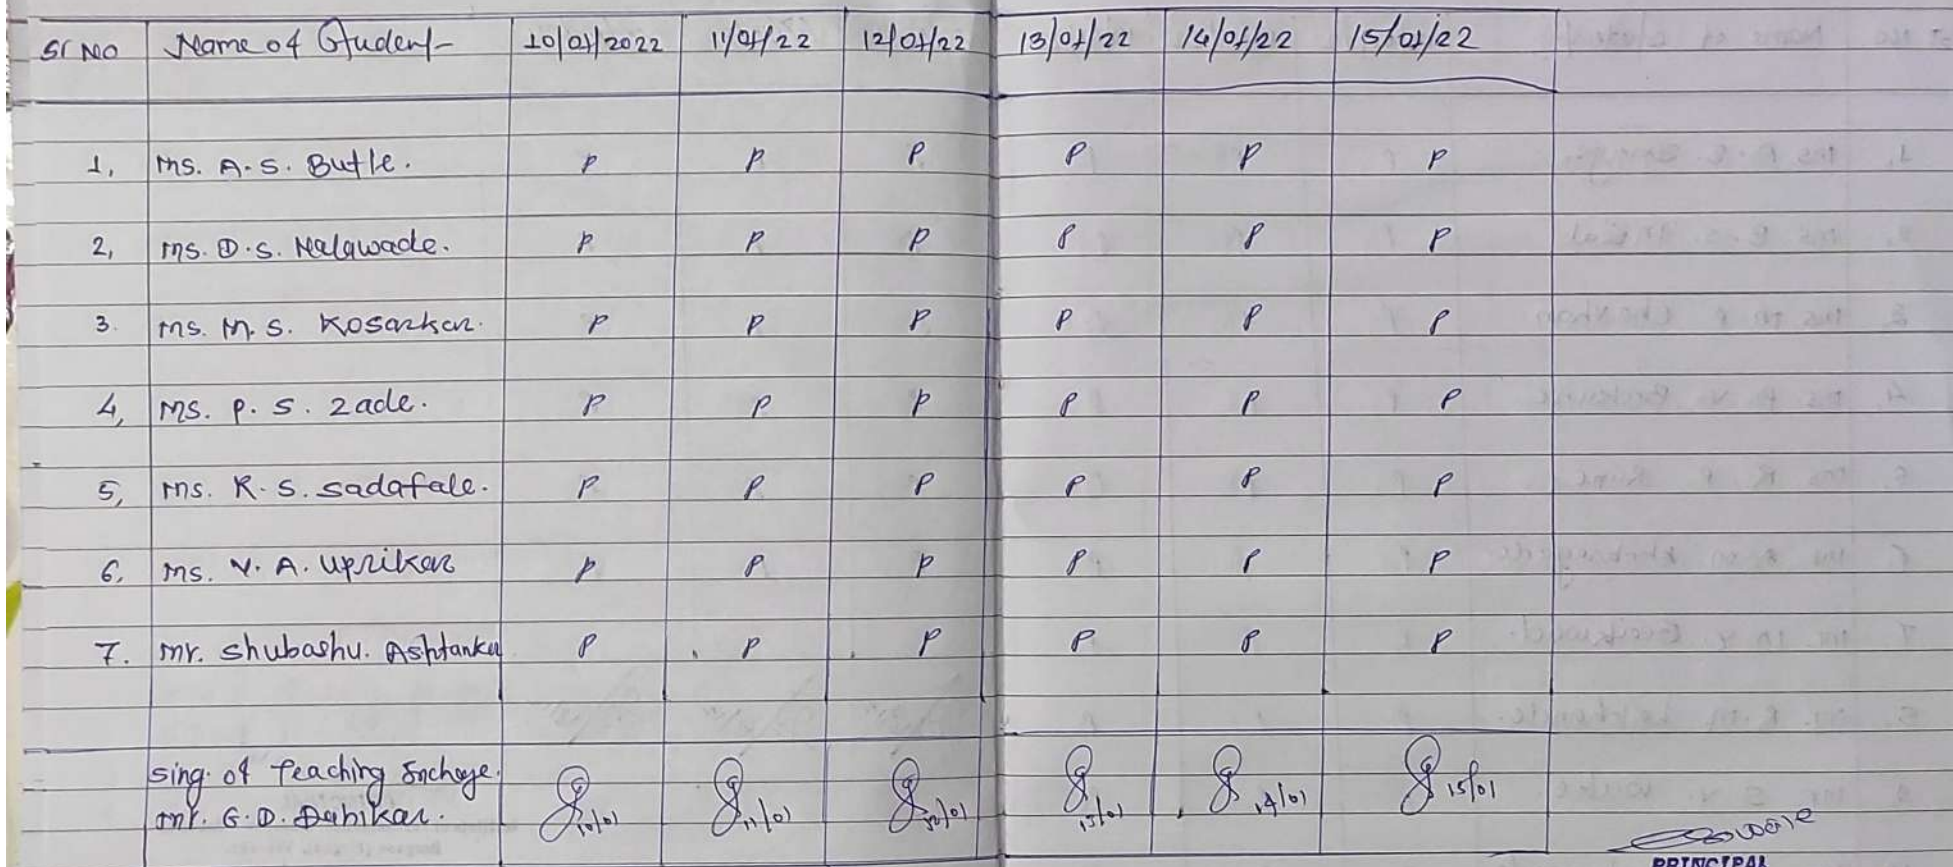 Sr No Name of Student 10/01/2022 11/01/22 12/01/22 13/01/22 14/01/22 15/01/22
1, Ms. A.S. Butle. P P P P P P
2, Ms. D.S. Nalawade. P P P P P P
3. Ms. M.S. Kosarkar. P P P P P P
4, Ms. P. S. Zade. P P P P P P
5, Ms. R.S. Sadafale. P P P P P P
6, Ms. V. A. Uprikar P P P P P P
7. Mr. Shubashu. Ashtankar P P P P P P
Sing. of Teaching Incharge.
Mr. G.D. Dahikar. 10/01 11/01 12/01 13/01 14/01 15/01
PRINCIPAL